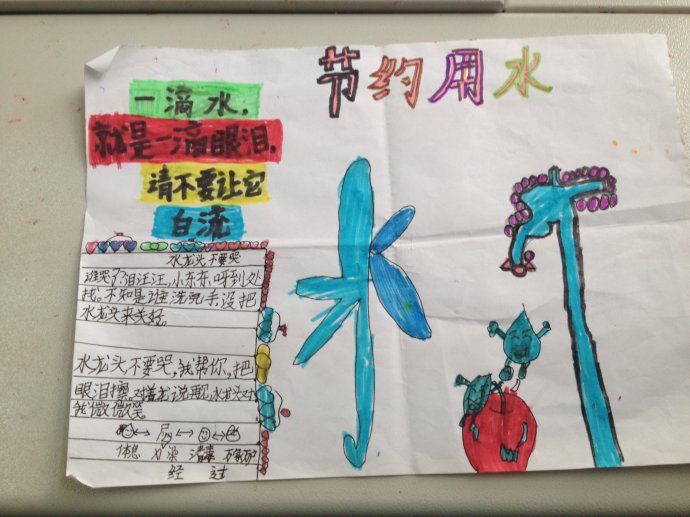 节约用水
一滴水,
就是一滴眼泪,
请不要让它
白流
水龙头不要哭
谁哭了,泪汪汪,小东东,呀到处
找。不知是谁洗完手没把
水龙头来关好。
水龙头不要哭,我帮你,把
眼泪擦,对着龙说再,水龙头对
我微微笑。
休息 消毒
经过